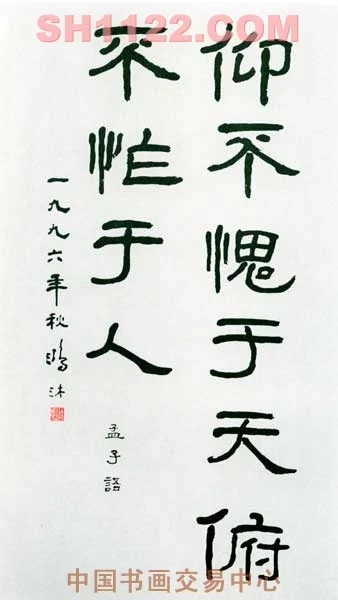 SH1122.COM
仰不愧于天俯
不怍于人
孟子語
一九九六年秋
中国书画交易中心